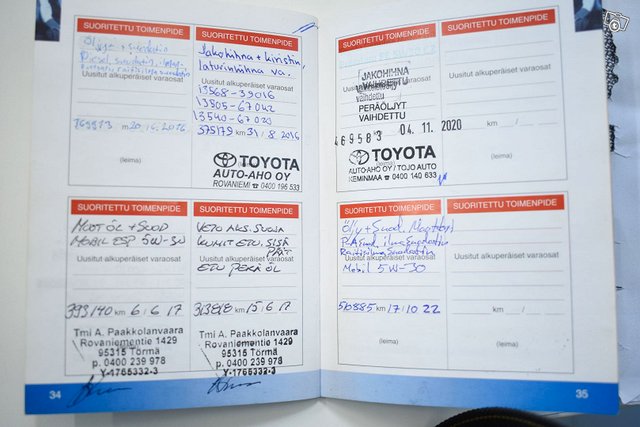 SUORITETTU TOIMENPIDE
Öljy + suodatin
Uusitut alkuperäiset varaosat
km 20.6.2016
(leima)
SUORITETTU TOIMENPIDE
Jakohihna + kiristin,
laturinhihna va.
Uusitut alkuperäiset varaosat
13568-39016
13505-67042
13540-67020
375179 km 31/8 2016
TOYOTA
AUTO-AHO OY
ROVANIEMI ☎ 0400 195 533
SUORITETTU TOIMENPIDE
MOOT ÖL + SUOD
MOBIL ESP 5W-30
Uusitut alkuperäiset varaosat
393140 km 6/6 17
Tmi A. Paakkolanvaara
Rovaniementie 1429
95315 Törmä
p. 0400 239 978
Y-1765332-3
SUORITETTU TOIMENPIDE
VETO AKS. SUOJA
KUMIT ETU, SISÄ
PÄÄT
Uusitut alkuperäiset varaosat
ETU PERÄ ÖL
km 15/6 17
Tmi A. Paakkolanvaara
Rovaniementie 1429
95315 Törmä
p. 0400 239 978
Y-1765332-3
34
SUORITETTU TOIMENPIDE
JAKOHIHNA
VAIHDETTU
Uusitut alkuperäiset varaosat
vaihdettu
PERÄÖLJYT
VAIHDETTU
469583 04.11.2020
TOYOTA
AUTO-AHO OY / TOJO AUTO
KEMINMAA ☎ 0400 140 633
SUORITETTU TOIMENPIDE
Uusitut alkuperäiset varaosat
km / -
(leima)
SUORITETTU TOIMENPIDE
Öljy + Suod. Moottori
Raitisilmasuodatin
Uusitut alkuperäiset varaosat
Mobil 5W-30
510885 km 17/10 22
(leima)
SUORITETTU TOIMENPIDE
Uusitut alkuperäiset varaosat
km / -
(leima)
35